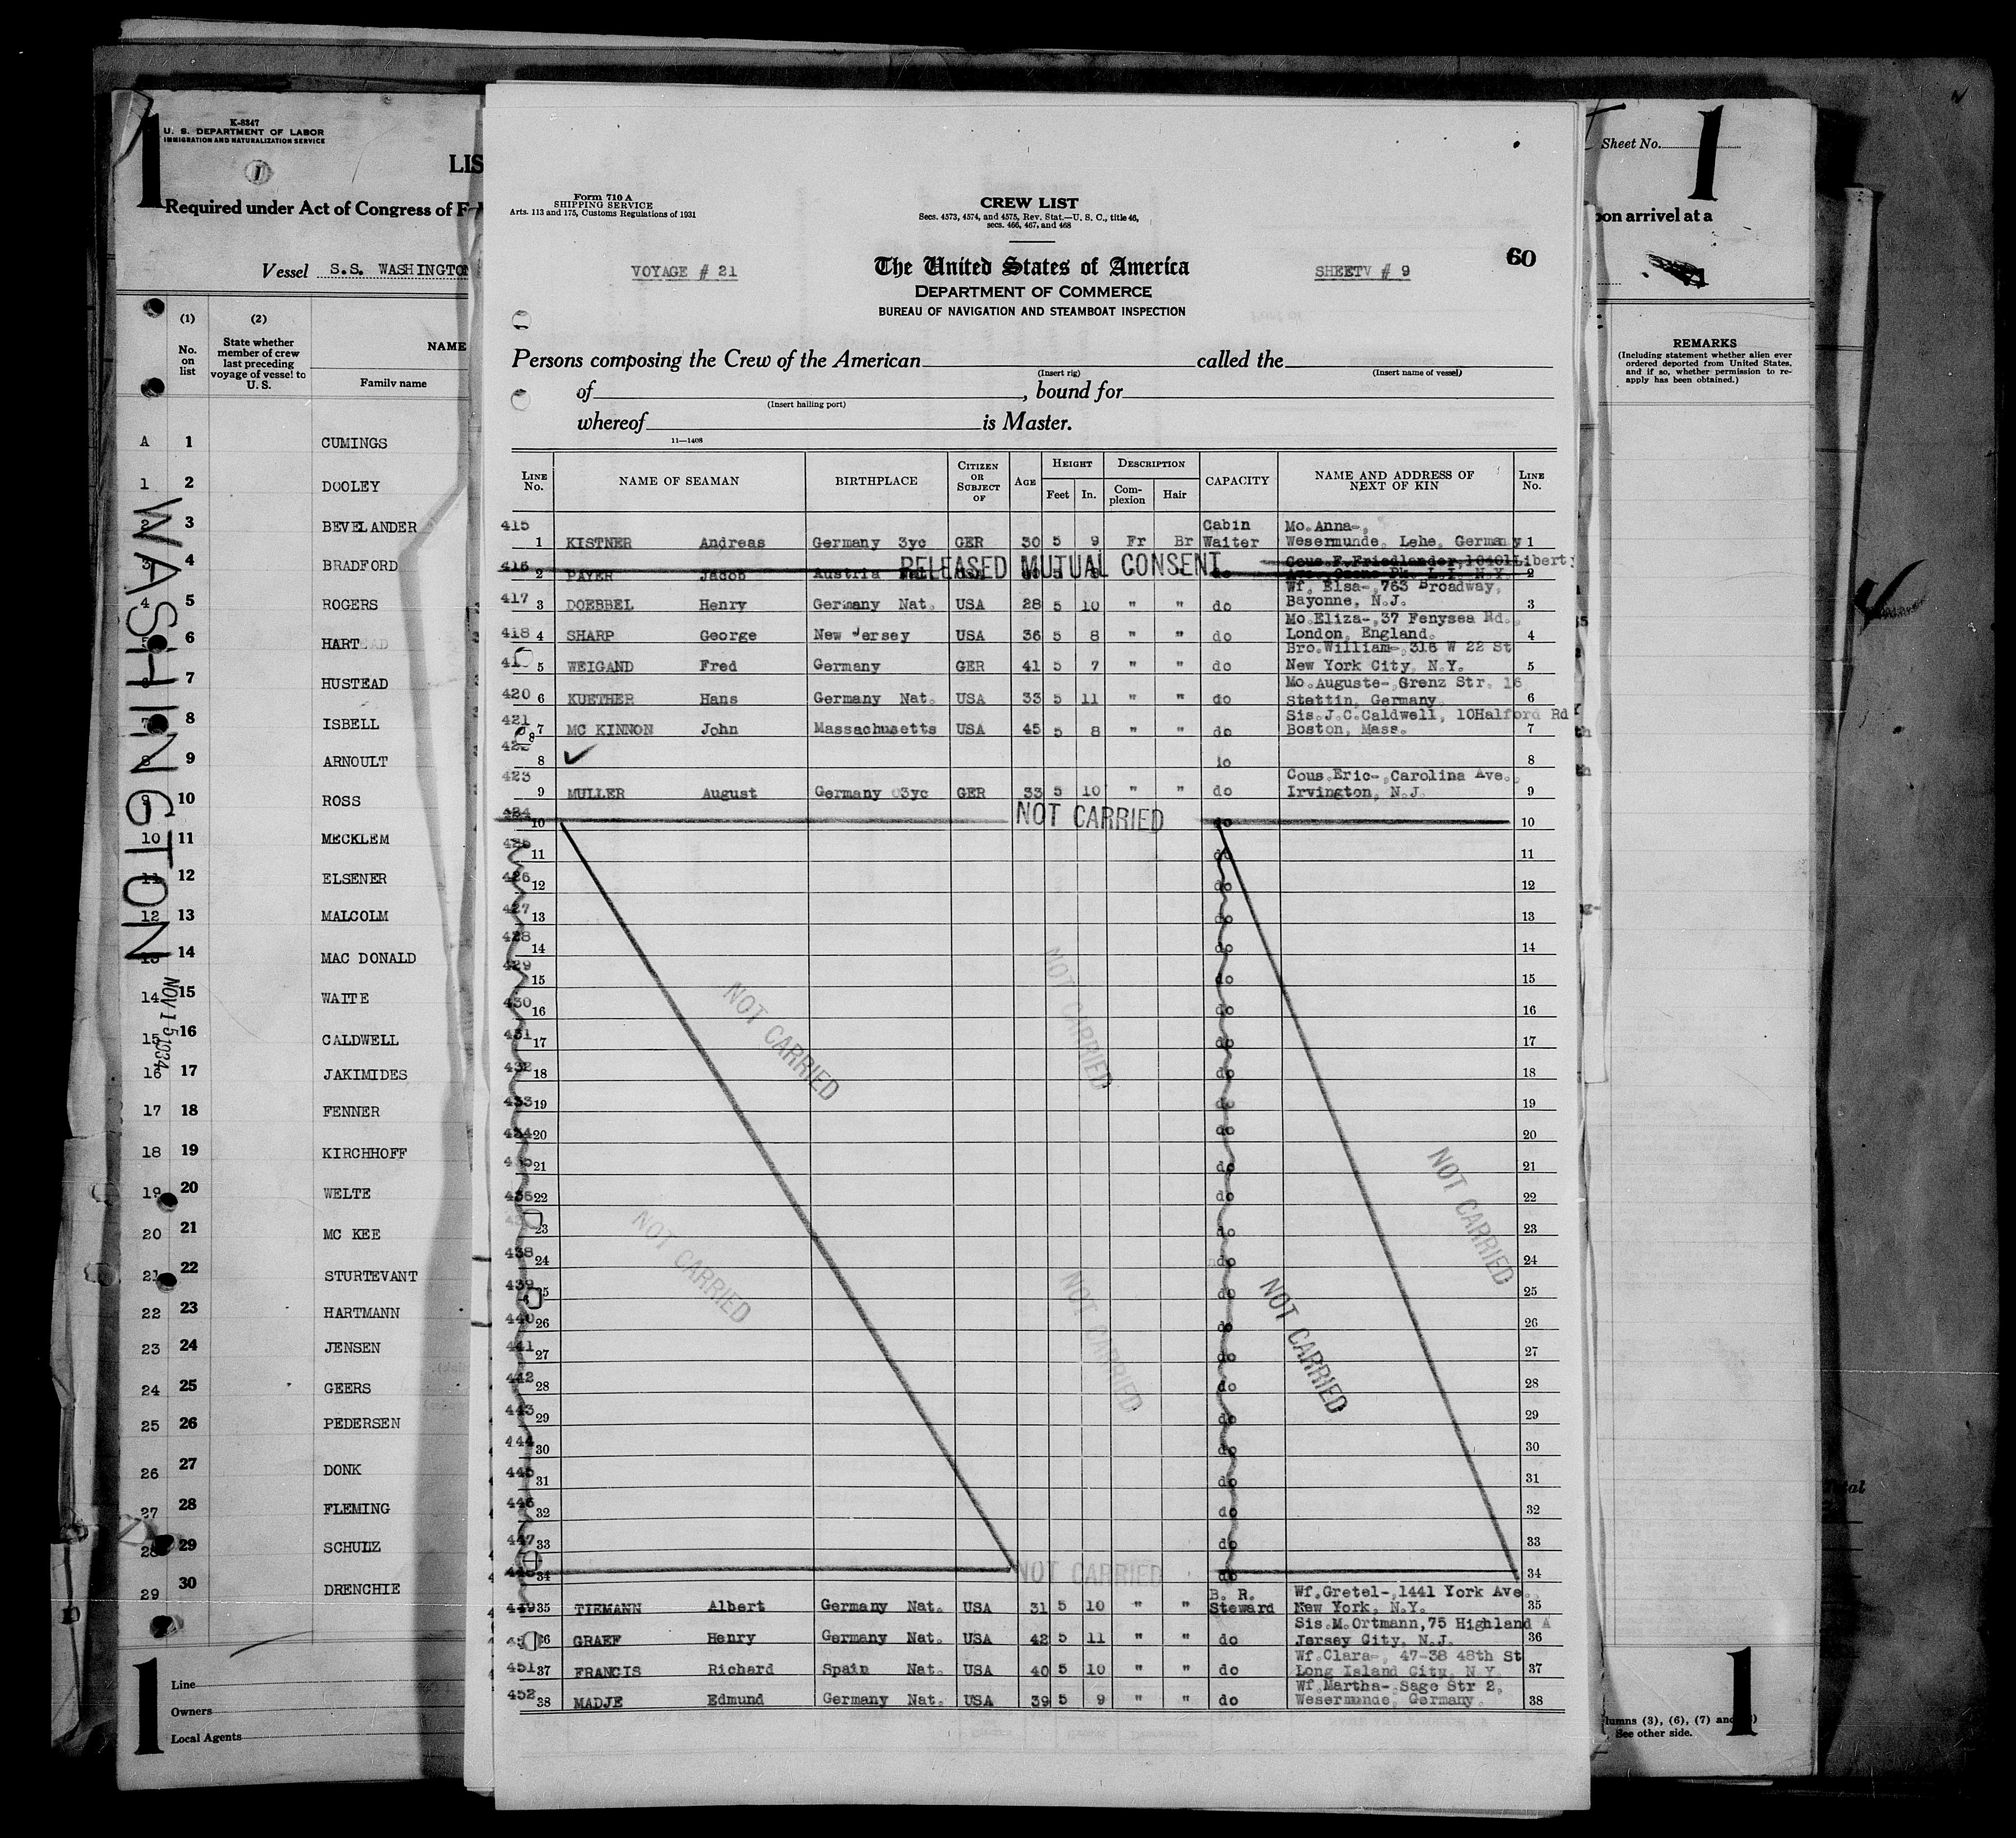 1
K-8347
U. S. DEPARTMENT OF LABOR
IMMIGRATION AND NATURALIZATION SERVICE
1
LIS
Required under Act of Congress of F
Vessel S.S. WASHINGTON
(1) (2)
No. on list
State whether member of crew last preceding voyage of vessel to U. S.
NAME
Family name
A 1 CUMINGS
1 2 DOOLEY
2 3 BEVELANDER
3 4 BRADFORD
4 5 ROGERS
5 6 HART
6 7 HUSTEAD
7 8 ISBELL
8 9 ARNOULT
9 10 ROSS
10 11 MECKLEM
11 12 ELSENER
12 13 MALCOLM
13 14 MAC DONALD
14 15 WAITE
15 16 CALDWELL
16 17 JAKIMIDES
17 18 FENNER
18 19 KIRCHHOFF
19 20 WELTE
20 21 MC KEE
21 22 STURTEVANT
22 23 HARTMANN
23 24 JENSEN
24 25 GEERS
25 26 PEDERSEN
26 27 DONK
27 28 FLEMING
28 29 SCHULZ
29 30 DRENCHIE
WASHINGTON
NOV 15 1934
1
Line
Owners
Local Agents
Form 710 A
SHIPPING SERVICE
Arts. 113 and 175, Customs Regulations of 1931
CREW LIST
Secs. 4573, 4574, and 4575, Rev. Stat.—U. S. C., title 46,
secs. 466, 467, and 468
60
VOYAGE # 21
The United States of America
SHEETV # 9
DEPARTMENT OF COMMERCE
BUREAU OF NAVIGATION AND STEAMBOAT INSPECTION
Persons composing the Crew of the American called the
(Insert rig) (Insert name of vessel)
of , bound for
(Insert hailing port)
whereof is Master.
11—1408
LINE No. NAME OF SEAMAN BIRTHPLACE CITIZEN OR SUBJECT OF AGE HEIGHT Feet In. DESCRIPTION Complexion Hair CAPACITY NAME AND ADDRESS OF NEXT OF KIN LINE No.
415 Cabin Mo.Anna-,
1 KISTNER Andreas Germany 3yc GER 30 5 9 Fr Br Waiter Wesermunde, Lehe, Germany 1
416 RELEASED MUTUAL CONSENT Cous.F.Friedlander,10401Liberty
2 PAYER Jacob Austria 2
Wf. Elsa-,763 Broadway,
417 3 DOEBBEL Henry Germany Nat. USA 28 5 10 " " do Bayonne, N.J. 3
Mo.Eliza-,37 Fenysea Rd.
418 4 SHARP George New Jersey USA 36 5 8 " " do London, England. 4
Bro.William-,316 W 22 St
41 5 WEIGAND Fred Germany GER 41 5 7 " " do New York City, N.Y. 5
Mo.Auguste-,Grenz Str. 16
420 6 KUETHER Hans Germany Nat. USA 33 5 11 " " do Stettin, Germany 6
Sis.J.C.Caldwell, 10Halford Rd
421 7 MC KINNON John Massachusetts USA 45 5 8 " " do Boston, Mass. 7
8 8
423 Cous.Eric-,Carolina Ave.
9 MULLER August Germany 03yc GER 33 5 10 " " do Irvington, N.J. 9
424 10 NOT CARRIED do 10
425 11 do 11
426 12 do 12
427 13 do 13
428 14 do 14
429 15 do 15
430 16 do 16
431 17 do 17
432 18 do 18
433 19 do 19
434 20 do 20
435 21 do 21
436 22 do 22
23 do 23
438 24 do 24
439 25 do 25
440 26 do 26
441 27 do 27
442 28 do 28
443 29 do 29
444 30 do 30
445 31 do 31
446 32 do 32
447 33 do 33
34 NOT CARRIED do 34
NOT CARRIED
NOT CARRIED
NOT CARRIED
NOT CARRIED
NOT CARRIED
NOT CARRIED
B. R. Wf.Gretel-,1441 York Ave
449 35 TIEMANN Albert Germany Nat. USA 31 5 10 " " Steward New York, N.Y. 35
Sis.M.Ortmann,75 Highland A
36 GRAEF Henry Germany Nat. USA 42 5 11 " " do Jersey City, N.J. 36
Wf.Clara-, 47-38 48th St
451 37 FRANCIS Richard Spain Nat. USA 40 5 10 " " do Long Island City, N.Y. 37
Wf.Martha-,Sage Str 2,
452 38 MADJE Edmund Germany Nat. USA 39 5 9 " " do Wesermunde, Germany. 38
Sheet No.
1
pon arrival at a
REMARKS
(Including statement whether alien ever ordered deported from United States, and if so, whether permission to re-apply has been obtained.)
lumns (3), (6), (7) and
See other side.
1